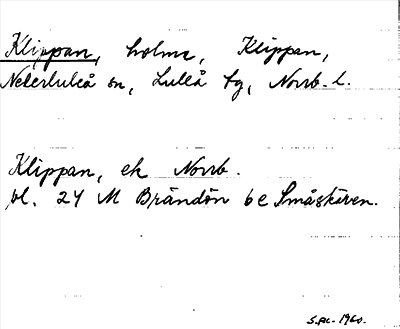 Klippan, holme, Klippan,
Nederluleå sn, Luleå tg, Norrb. l.
Klippan, ek Norrb.
bl. 24 M Brändön 6 e Småskären.
S.AC. 1960.